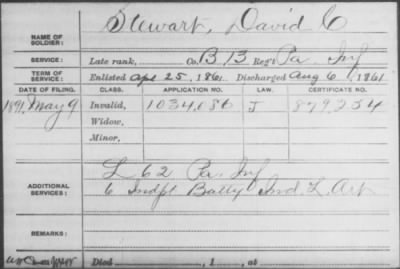 NAME OF SOLDIER: Stewart, David C
SERVICE: Late rank, Co. B 13 Reg't Pa. Inf
TERM OF SERVICE: Enlisted Apr 25, 1861 Discharged Aug 6, 1861
DATE OF FILING. CLASS. APPLICATION NO. LAW. CERTIFICATE NO.
1891, May 9 Invalid, 1034,086 J 879,254
Widow,
Minor,
ADDITIONAL SERVICES: L 62 Pa. Inf
6 Indpt Batty Ind. L. Art
REMARKS:
Died , 1 , at